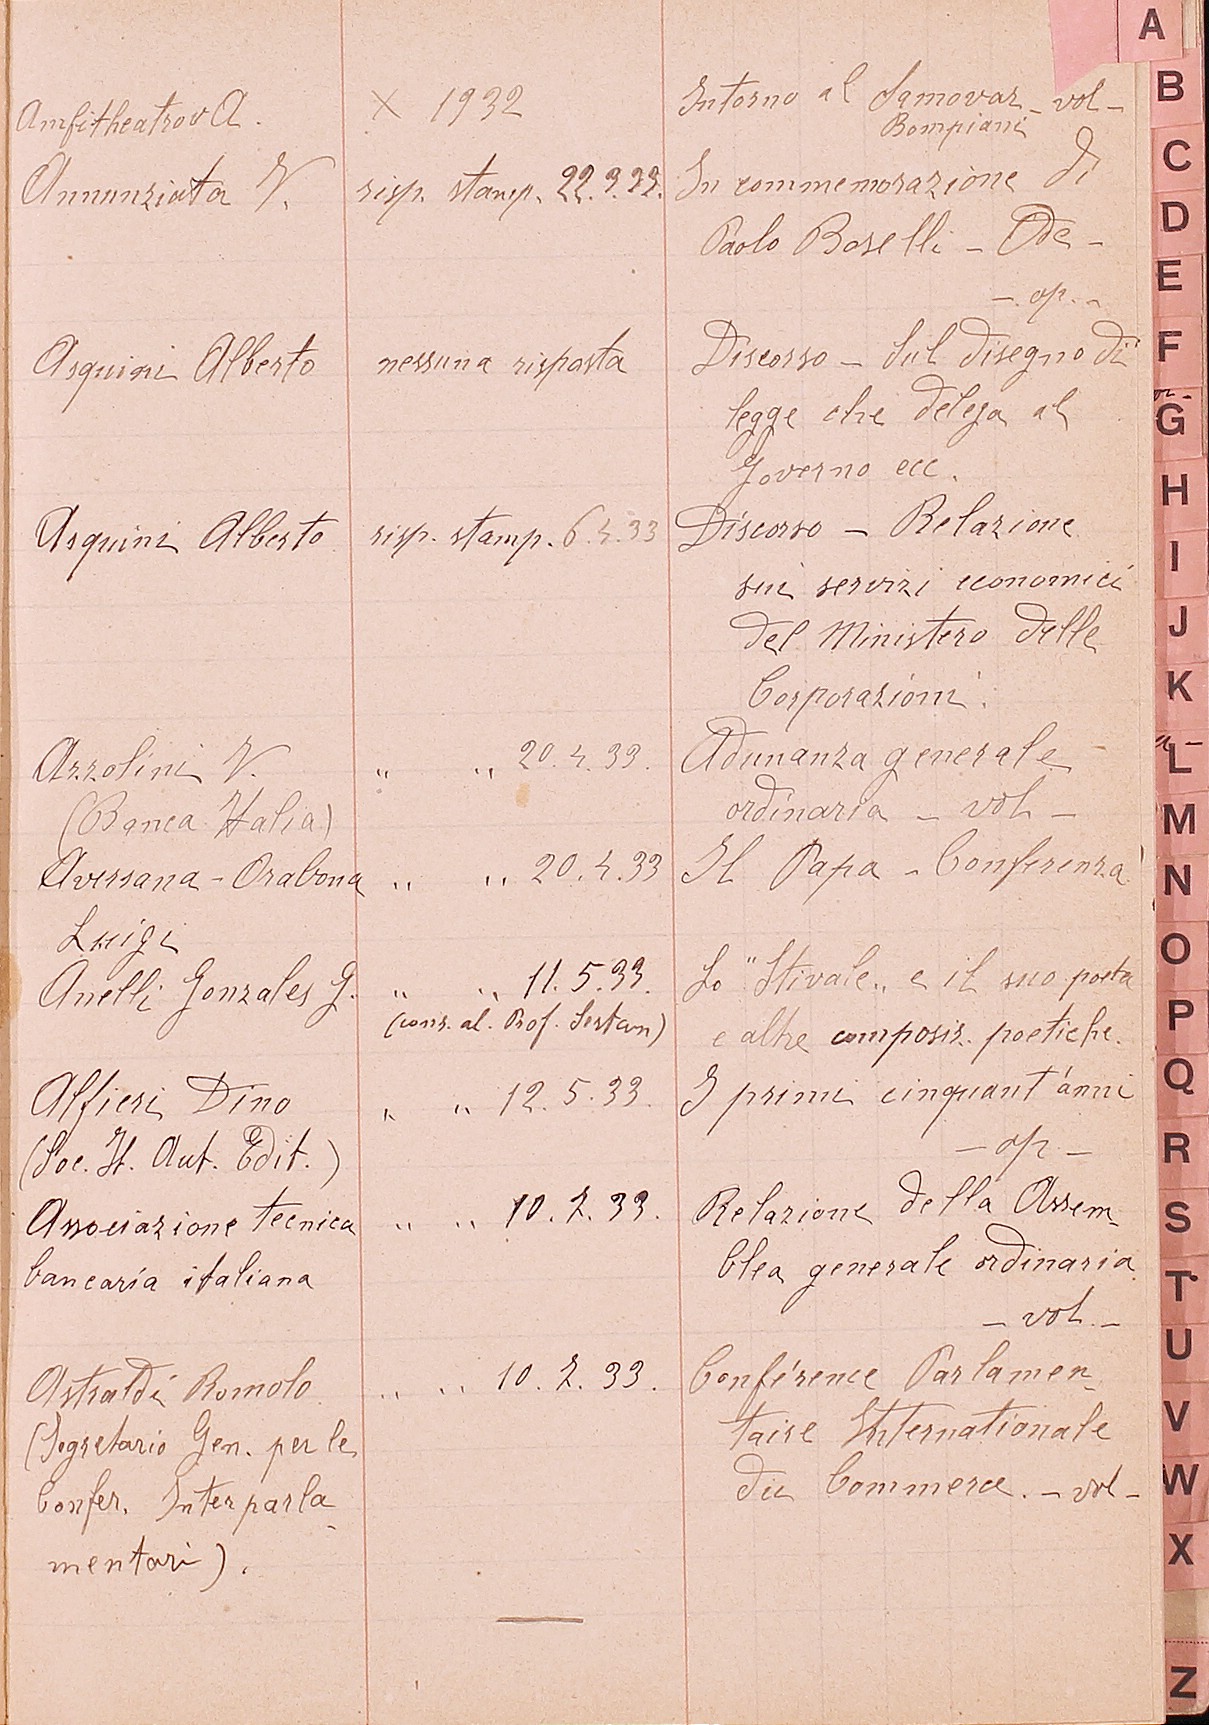 Amfitheatrov A. X 1932 Intorno al Samovar - vol -
Bompiani
Annunziata V. risp. stamp. 22.3.33. In commemorazione di
Paolo Boselli - Ode -
- op. -
Asquini Alberto nessuna risposta Discorso - Sul disegno di
legge che delega al
Governo ecc.
Asquini Alberto risp. stamp. 6.4.33 Discorso - Relazione
sui servizi economici
del Ministero delle
Corporazioni.
Azzolini V. " " 20.4.33. Adunanza generale
(Banca Italia) ordinaria - vol -
Aversana - Orabona " " 20.4.33 Il Papa - Conferenza
Luigi
Anelli Gonzales G. " " 11.5.33. Lo "Stivale" e il suo poeta
(cons. al. Prof. Sestan) e altre composiz. poetiche.
Alfieri Dino " " 12.5.33. I primi cinquant'anni
(Soc. It. Aut. Edit.) - op -
Associazione tecnica " " 10.7.33. Relazione della Assem-
bancaria italiana blea generale ordinaria
- vol. -
Astraldi Romolo " " 10.7.33. Conférence Parlamen-
(Segretario Gen. per le taire Internationale
Confer. Interparla- du Commerce. - vol -
mentari).
A
B
C
D
E
F
G
H
I
J
K
L
M
N
O
P
Q
R
S
T
U
V
W
X
Z